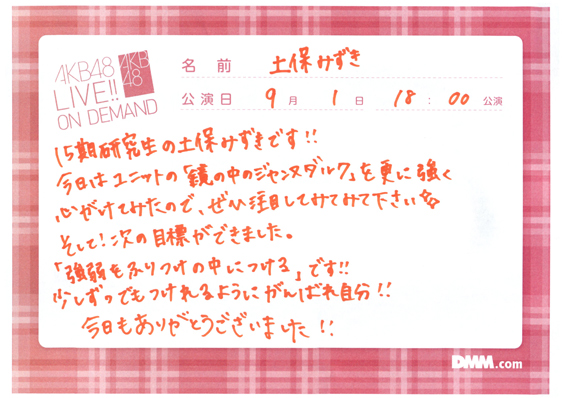 AKB48
LIVE!!
ON DEMAND
AKB
48
名 前 土保みずき
公演日 9月 1日 18:00 公演
15期研究生の土保みずきです!!
今日はユニットの「鏡の中のジャンヌダルク」を更に強く
心がけてみたので、ぜひ注目してみてみて下さい☆
そして!次の目標ができました。
「強弱をふりつけの中につける」です!!
少しずつでもつけれるようにがんばれ自分!!
今日もありがとうございました!!
DMM.com